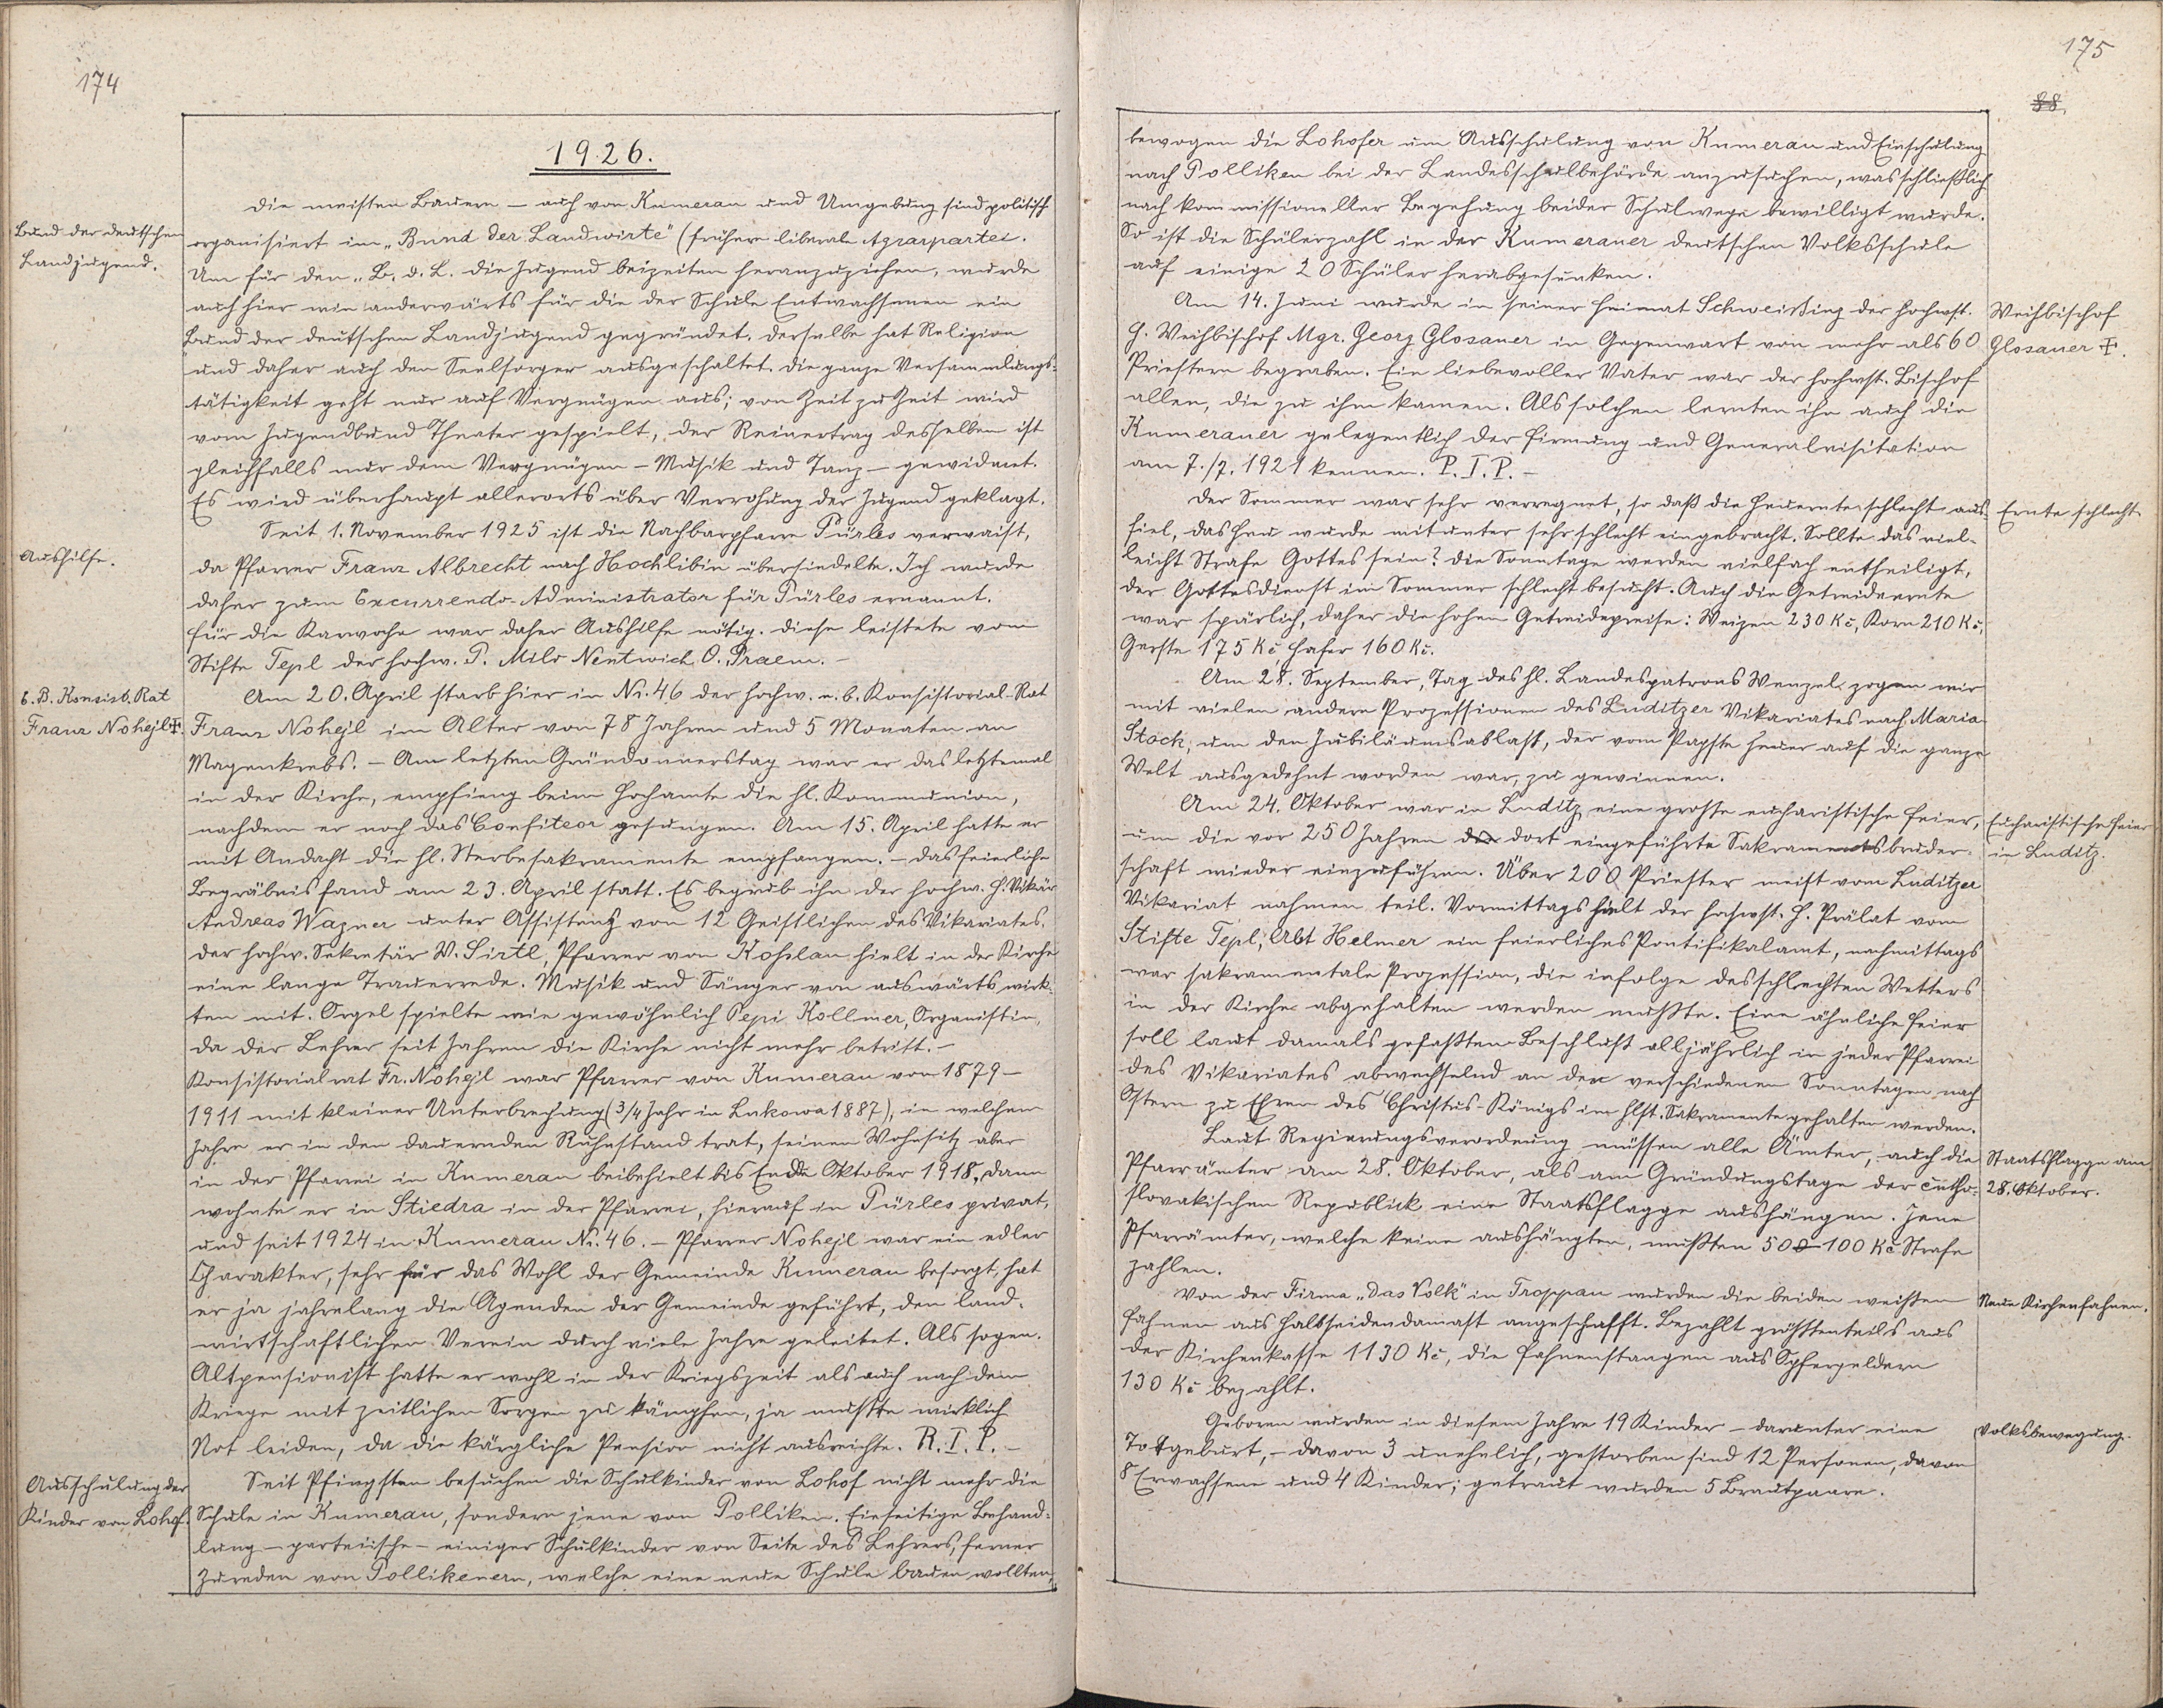 174
1926.
Die meisten Bauern – auch von Kumerau und Umgebung sind politisch
Bund der deutschen
Landjugend.
organisiert im „Bund der Landwirte" (früher liberale Agrarpartei.
Um für den „B. d. L. die Jugend beizeiten heranzuziehen, wurde
auch hier wie anderwärts für die der Schule Entwachsenen ein
Bund der deutschen Landjugend gegründet. Derselbe hat Religion
und daher auch den Seelsorger ausgeschaltet. Die ganze Versammlungs-
tätigkeit geht nur auf Vergnügen aus; von Zeit zu Zeit wird
vom Jugendbund Theater gespielt, der Reinertrag desselben ist
gleichfalls nur dem Vergnügen – Musik und Tanz – gewidmet.
Es wird überhaupt allerorts über Verrohung der Jugend geklagt.
Seit 1. November 1925 ist die Nachbarpfarre Pürles verwaist,
Aushilfe.
da Pfarrer Franz Albrecht nach Hochlibin übersiedelte. Ich wurde
daher zum Excurrendo-Administrator für Pürles ernannt.
Für die Karwoche war daher Aushilfe nötig. Diese leistete vom
Stifte Tepl der hochw. P. Milo Nentwich O. Praem. –
b. B. Konsist. Rat
Franz Nohejl ✝.
Am 20. April starb hier in Nr. 46 der hochw. n. b. Konsistorial-Rat
Franz Nohejl im Alter von 78 Jahren und 5 Monaten an
Magenkrebs. – Am letzten Gründonnerstag war er das letztemal
in der Kirche, empfieng beim Hochamte die hl. Kommunion,
nachdem er noch das Confiteor gesungen. Am 15. April hatte er
mit Andacht die hl. Sterbesakramente empfangen. – Das feierliche
Begräbnis fand am 23. April statt. Es begrub ihn der hochw. H. Vikär
Andreas Wagner unter Assistenz von 12 Geistlichen des Vikariates.
Der hochw. Sekretär V. Sirtl, Pfarrer von Kohlau hielt in der Kirche
eine lange Trauerrede. Musik und Sänger von auswärts wirk-
ten mit. Orgel spielte wie gewöhnlich Pepi Kollmer, Organistin,
da der Lehrer seit Jahren die Kirche nicht mehr betritt. –
Konsistorialrat Fr. Nohejl war Pfarrer von Kumerau von 1879 –
1911 mit kleiner Unterbrechung (3/4 Jahr in Lukowa 1887), in welchem
Jahre er in den dauernden Ruhestand trat, seinen Wohnsitz aber
in der Pfarrei in Kumerau beibehielt bis Ende Oktober 1918, dann
wohnte er in Stiedra in der Pfarrei, hierauf in Pürles privat,
und seit 1924 in Kumerau Nr. 46. – Pfarrer Nohejl war ein edler
Charakter, sehr für das Wohl der Gemeinde Kumerau besorgt, hat
er ja jahrelang die Agenden der Gemeinde geführt, den land-
wirtschaftlichen Verein durch viele Jahre geleitet. Als sogen.
Altpensionist hatte er wohl in der Kriegszeit als auch nach dem
Kriege mit zeitlichen Sorgen zu kämpfen, ja mußte wirklich
Not leiden, da die kärgliche Pension nicht ausreichte. R. I. P. –
Ausschulung der
Kinder von Lohof.
Seit Pfingsten besuchen die Schulkinder von Lohof nicht mehr die
Schule in Kumerau, sondern jene von Polliken. Einseitige Behand-
lung – parteiische – einiger Schulkinder von Seite des Lehrers, ferner
Zureden von Pollikenern, welche eine neue Schule bauen wollten,
175
88.
bewogen die Lohofer um Ausschulung von Kumerau und Einschulung
nach Polliken bei der Landesschulbehörde anzusuchen, was schließlich
nach kommissioneller Begehung beider Schulwege bewilligt wurde.
So ist die Schülerzahl in der Kumerauer deutschen Volksschule
auf einige 20 Schüler herabgesunken.
Am 14. Juni wurde in seiner Heimat Schweißing der hochwst.
Weihbischof
Glosauer ✝.
H. Weihbischof Mgr. Georg Glosauer in Gegenwart von mehr als 60
Priestern begraben. Ein liebevoller Vater war der hochwst. Bischof
allen, die zu ihm kamen. Als solchen lernten ihn auch die
Kumerauer gelegentlich der Firmung und Generalvisitation
am 7./7. 1921 kennen. P. I. P. –
Der Sommer war sehr verregnet, so daß die Heuernte schlecht aus-
Ernte schlecht.
fiel, das Heu wurde mitunter sehr schlecht eingebracht. Sollte das viel-
leicht Strafe Gottes sein? Die Sonntage werden vielfach entheiligt,
der Gottesdienst im Sommer schlecht besucht. Auch die Getreideernte
war spärlich, daher die hohen Getreidepreise: Weizen 230 Kč, Korn 210 Kč,
Gerste 175 Kč, Hafer 160 Kč.
Am 28. September, Tag des hl. Landespatrons Wenzel, zogen wir
mit vielen andern Prozessionen des Luditzer Vikariates nach Maria
Stock, um den Jubiläumsablaß, der vom Papste heuer auf die ganze
Welt ausgedehnt worden war, zu gewinnen.
Am 24. Oktober war in Luditz eine grosse eucharistische Feier,
Eucharistische Feier
in Luditz.
um die vor 250 Jahren dort eingeführte Sakramentsbruder-
schaft wieder einzuführen. Über 200 Priester meist vom Luditzer
Vikariat nahmen teil. Vormittags hielt der hochwst. H. Prälat vom
Stifte Tepl, Abt Helmer ein feierliches Pontifikalamt, nachmittags
war sakramentale Prozession, die infolge des schlechten Wetters
in der Kirche abgehalten werden mußte. Eine ähnliche Feier
soll laut damals gefaßten Beschluß alljährlich in jeder Pfarrei
des Vikariates abwechselnd an den verschiedenen Sonntagen nach
Ostern zu Ehren des Christus-Königs im hlst. Sakramente gehalten werden.
Laut Regierungsverordnung müssen alle Ämter, auch die
Staatsflagge am
28. Oktober.
Pfarrämter am 28. Oktober, als am Gründungstage der čecho-
slovakischen Republick eine Staatsflagge aushängen. Jene
Pfarrämter, welche keine aushängten, mußten 50–100 Kč Strafe
zahlen.
Von der Firma „Das Volk" in Troppau wurden die beiden weißen
Neue Kirchenfahnen.
Fahnen aus Halbseidendamast angeschafft. Bezahlt größtenteils aus
der Kirchenkasse 1130 Kč, die Fahnenstangen aus Opfergeldern
130 Kč bezahlt.
Geboren wurden in diesem Jahre 19 Kinder – darunter eine
Volksbewegung.
Totgeburt, – davon 3 unehelich, gestorben sind 12 Personen, davon
8 Erwachsene und 4 Kinder; getraut wurden 5 Brautpaare.